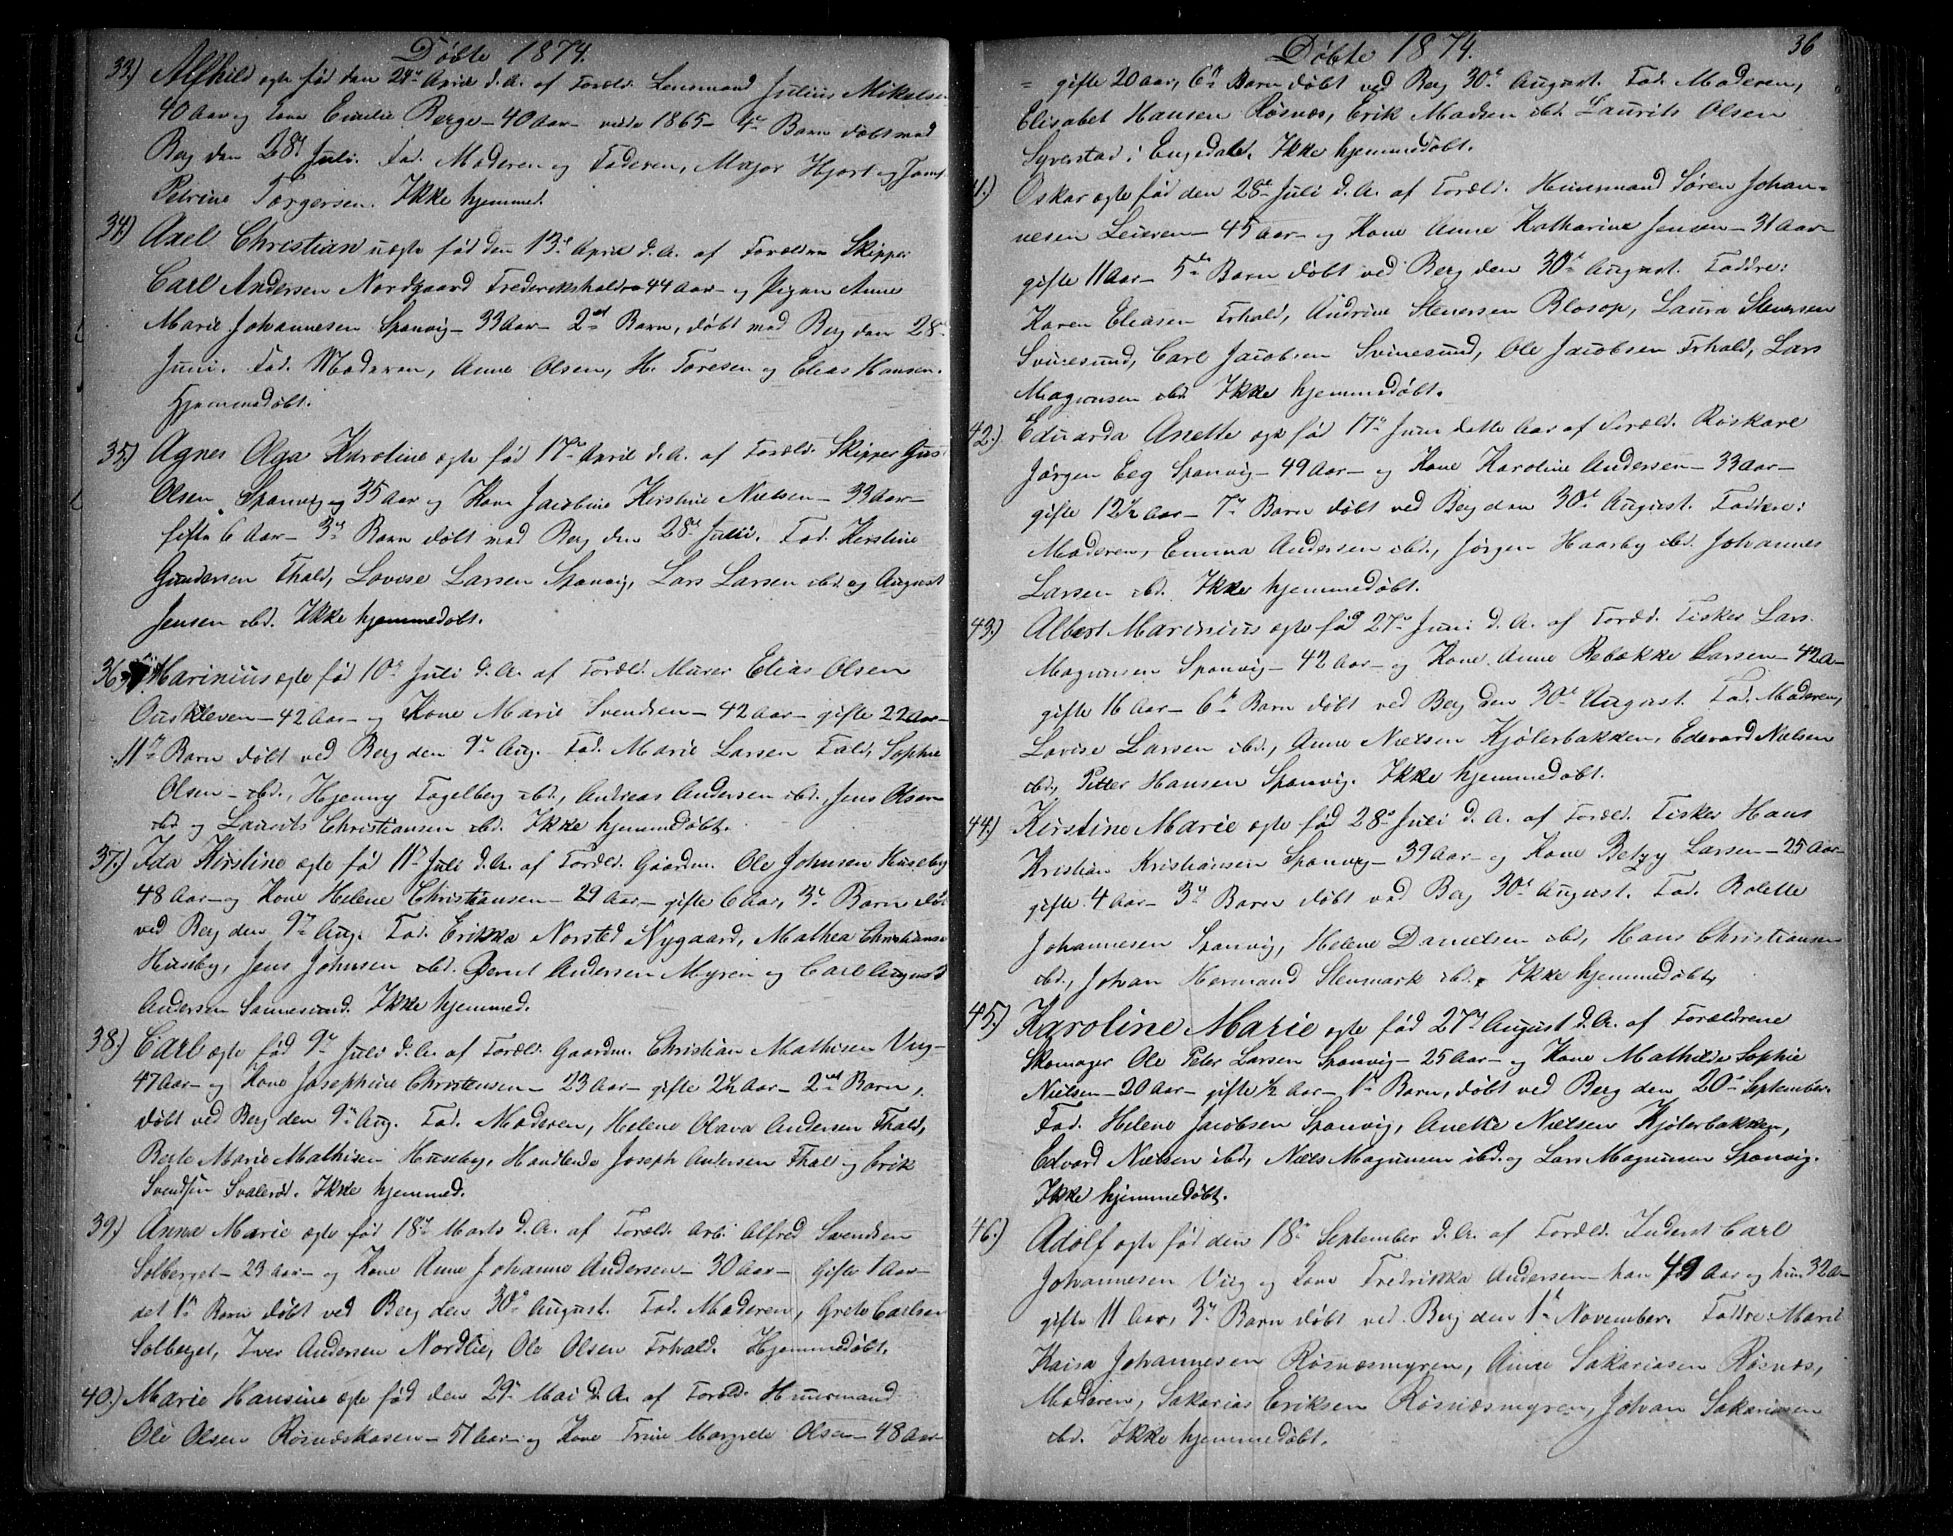 Døbte 1874.
33.) Alfhild ægte født den 29de April d.A. af Foræld. Lensmand Julius Mikelsen
40 Aar og Kone Emilie Berge - 40 Aar - viede 1865 - 4de Barn døbt med
Berg den 28de Juli. Fad. Moderen og Faderen, Major Hjort og
Petrine Torgersen. Ikke hjemmed.
34.) Axel Christian uægte fød den 13de April d.A. af Forældre Skipper
Carl Andersen Nordgaard Frederikshald - 44 Aar - og Pigen Anne
Marie Johannesen Sponvig - 33 Aar - 2det Barn, døbt med Berg den 28de
Juni. Fad. Moderen, Anne Olsen, H. Toresen og Elias Hansen.
Hjemmedøbt.
35.) Agnes Olga Karoline ægte fød 17de April d.A. af Foræld. Skipper Gus.
Olsen Sponvig og 35 Aar og Kone Jacobine Kirstine Nielsen - 33 Aar -
gifte 6 Aar - 3de Barn døbt med Berg den 28de Juli. Fad. Kirstine
Gundersen Fhald, Lovise Larsen Sponvig, Lars Larsen ibd og August
Jensen ibd. Ikke hjemmedøbt.
36.) Marinius ægte fød 10de Juli d.A. af Foræld. Murer Elias Olsen
Ouskleven - 42 Aar - og Kone Marie Svendsen - 42 Aar - gifte 22 Aar -
11te Barn døbt ved Berg den 9de Aug. Fad. Marie Larsen Fald, Sophie
Olsen - ibd., Hjenny Fogelberg ibd., Andreas Andersen ibd., Jens Olsen
ibd og Laurits Christiansen ibd. Ikke hjemmedøbt.
37.) Ida Kirstine ægte fød 11te Juli d.A. af Foræld. Gaardm. Ole Johnsen Huseby
48 Aar - og Kone Helene Christiansen - 29 Aar - gifte 6 Aar, 3de Barn døbt
ved Berg den 9de Aug. Fad. Erikka Norsted Nygaard, Mathea Christianse
Huseby, Jens Johnsen ibd. Bernt Andersen Myren og Carl August
Andersen Sannesund. Ikke hjemmed.
38.) Carl ægte fød 9de Juli d.A. af Foræld. Gaardm. Christian Mathisen Vig -
47 Aar - og Kone Josephine Christensen - 23 Aar - gifte 2½ Aar - 2det Barn,
døbt ved Berg den 9de Aug. Fad. Moderen, Helene Olava Andersen Fhald,
Berte Marie Mathisen Huseby, Handlende Joseph Andersen Fhal og Erik
Svendsen Svalerød. Ikke hjemmed.
39.) Anna Marie ægte fød 18de Marts d.A. af Foræld. Arb. Alfred Svendsen
Solberget - 23 Aar - og Kone Anne Johanne Andersen - 30 Aar - Gifte 1 Aar -
det 1te Barn døbt ved Berg den 30de August. Fad. Moderen, Grete Carlsen
Solberget, Iver Andersen Nordlie, Ole Olsen Frhald. Hjemmedøbt.
40.) Marie Hansine ægte fød den 29de Mai d.A. af Foræld. Huusmand
Ole Olsen Røsnæskasen - 51 Aar - og Kone Trine Margrete Olsen - 48 Aar
Døbte 1874.
36
= gifte 20 Aar, 6te Barn døbt ved Berg 30te August. Fad. Moderen,
Elisabet Hansen Røsnæs, Erik Madsen ibd. Laurits Olsen
Syverstad i Engedal. Ikke hjemmedøbt.
41.) Oskar ægte fød den 28de Juli d.A. af Foræld. Huusmand Søren Johan-
nesen Leieren - 45 Aar - og Kone Anne Katharine Jensen - 31 Aar -
gifte 11 Aar - 5te Barn døbt ved Berg den 30te August. Faddre:
Karen Eliasen Frhald, Andrine Stenersen Blosop, Laura Stenersen
Svinesund, Carl Jacobsen Svinesund, Ole Jacobsen Frhald, Lars
Magnusen ibd. Ikke hjemmedøbt.
42.) Eduarda Anette ægte fød 17de Juni dette Aar af Foræld. Røskarl
Jørgen Eeg Sponvig - 49 Aar - og Kone Karoline Andersen - 33 Aar -
gifte 12½ Aar - 7de Barn døbt ved Berg den 30te August. Faddre:
Moderen, Emma Andersen ibd., Jørgen Haarby ibd. Johannes
Larsen ibd. Ikke hjemmedøbt.
43.) Albert Marinius ægte fød 27de Juni d.A. af Foræld. Fisker Lars
Magnusen Sponvig - 42 Aar - og Kone Anne Rebække Larsen - 42 A -
gifte 16 Aar - 6te Barn døbt ved Berg den 30te August. Fad. Moderen,
Lovise Larsen ibd., Anne Nielsen Kjølerbakken, Edevard Nielsen
ibd., Petter Hansen Sponvig. Ikke hjemmedøbt.
44.) Kirstine Marie ægte fød 28de Juli d.A. af Foræld. Fisker Hans
Kristian Kristiansen Sponvig - 39 Aar - og Kone Betzy Larsen - 25 Aar -
gifte 4 Aar - 3de Barn døbt ved Berg 30te August. Fad. Rolette
Johannesen Sponvig, Helene Danielsen ibd, Hans Christiansen
ibd., Johan Hermand Stenmark ibd. Ikke hjemmedøbt,
45.) Karoline Marie ægte fød 27de August d.A. af Forældrene
Skomager Ole Peter Larsen Sponvig - 25 Aar - og Kone Mathilde Sophie
Nielsen - 20 Aar - gifte ½ Aar - 1te Barn, døbt ved Berg den 20de September.
Fad. Helene Jacobsen Sponvig, Anette Nielsen Kjølerbakken,
Edvard Nielsen ibd, Niels Magnusen ibd. og Lars Magnusen Sponvig.
Ikke hjemmedøbt.
46.) Adolf ægte fød den 18de September d.A. af Foræld. Inderst Carl
Johannesen Vig og Kone Fredrikka Andersen - han 49 Aar og hun 32 A -
gifte 11 Aar, 3de Barn døbt ved Berg den 1te November. Faddre: Marie
Kaisa Johannesen Røsnæsmyren, Anne Sakariasen Røsnæs,
Moderen, Sakarias Eriksen Røsnæsmyren, Johan Sakariasen
ibd. Ikke hjemmedøbt.